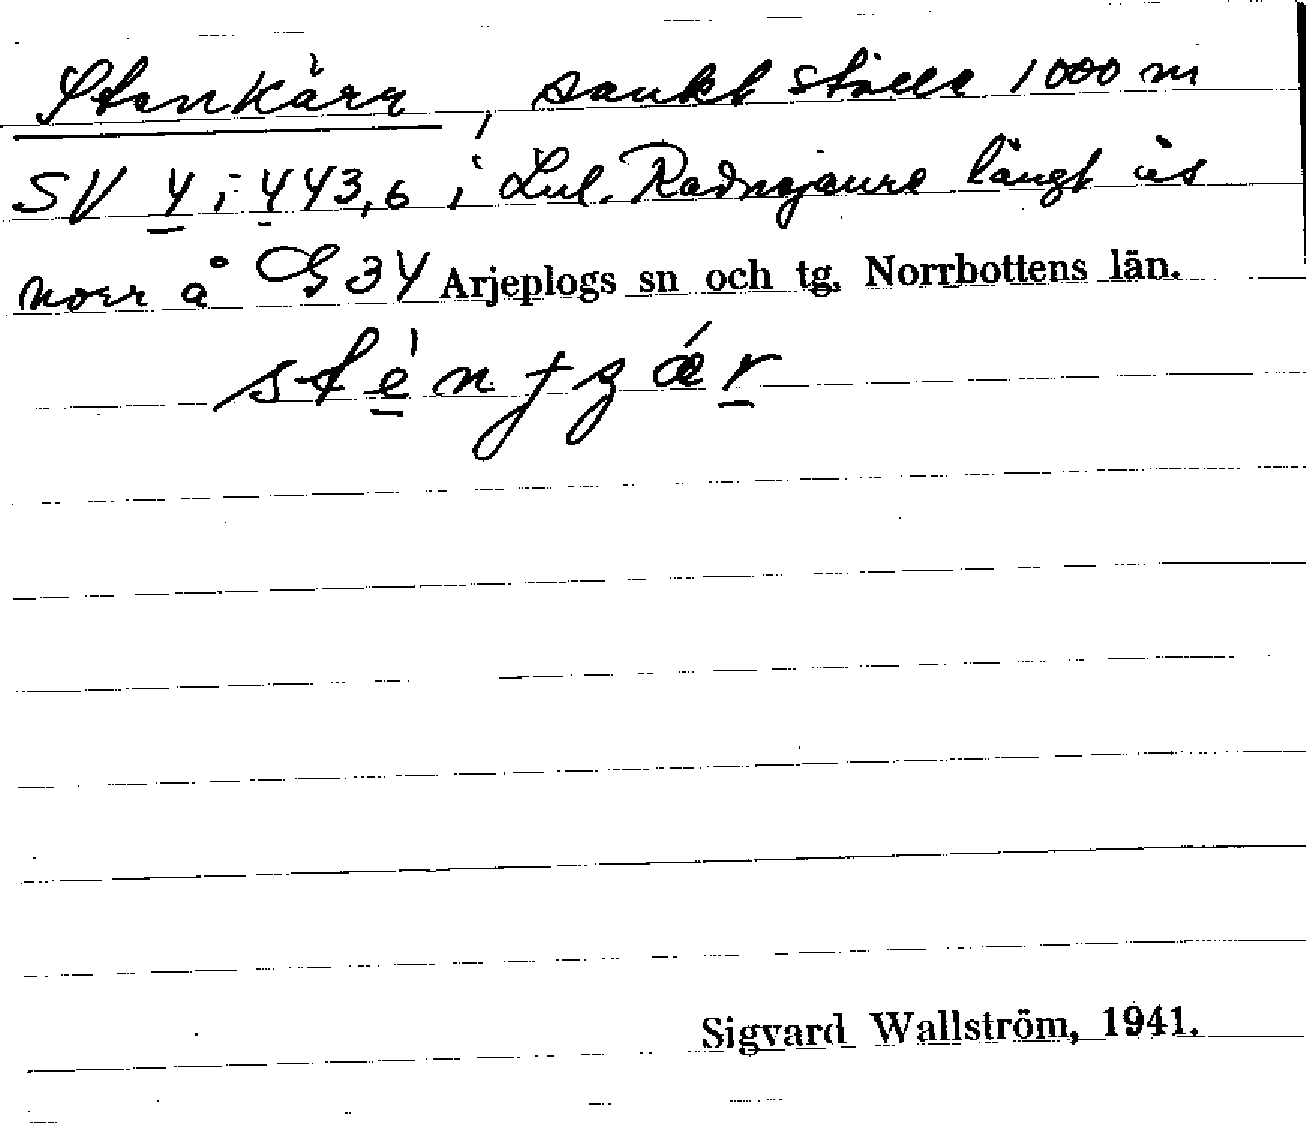 Stenkärr, sankt ställe 1000 m
SV 4 i 443,6 i Lul. Radnejaure längt ås
norr å G34 Arjeplogs sn och tg, Norrbottens län.
stèntʒǽr
Sigvard Wallström, 1941.